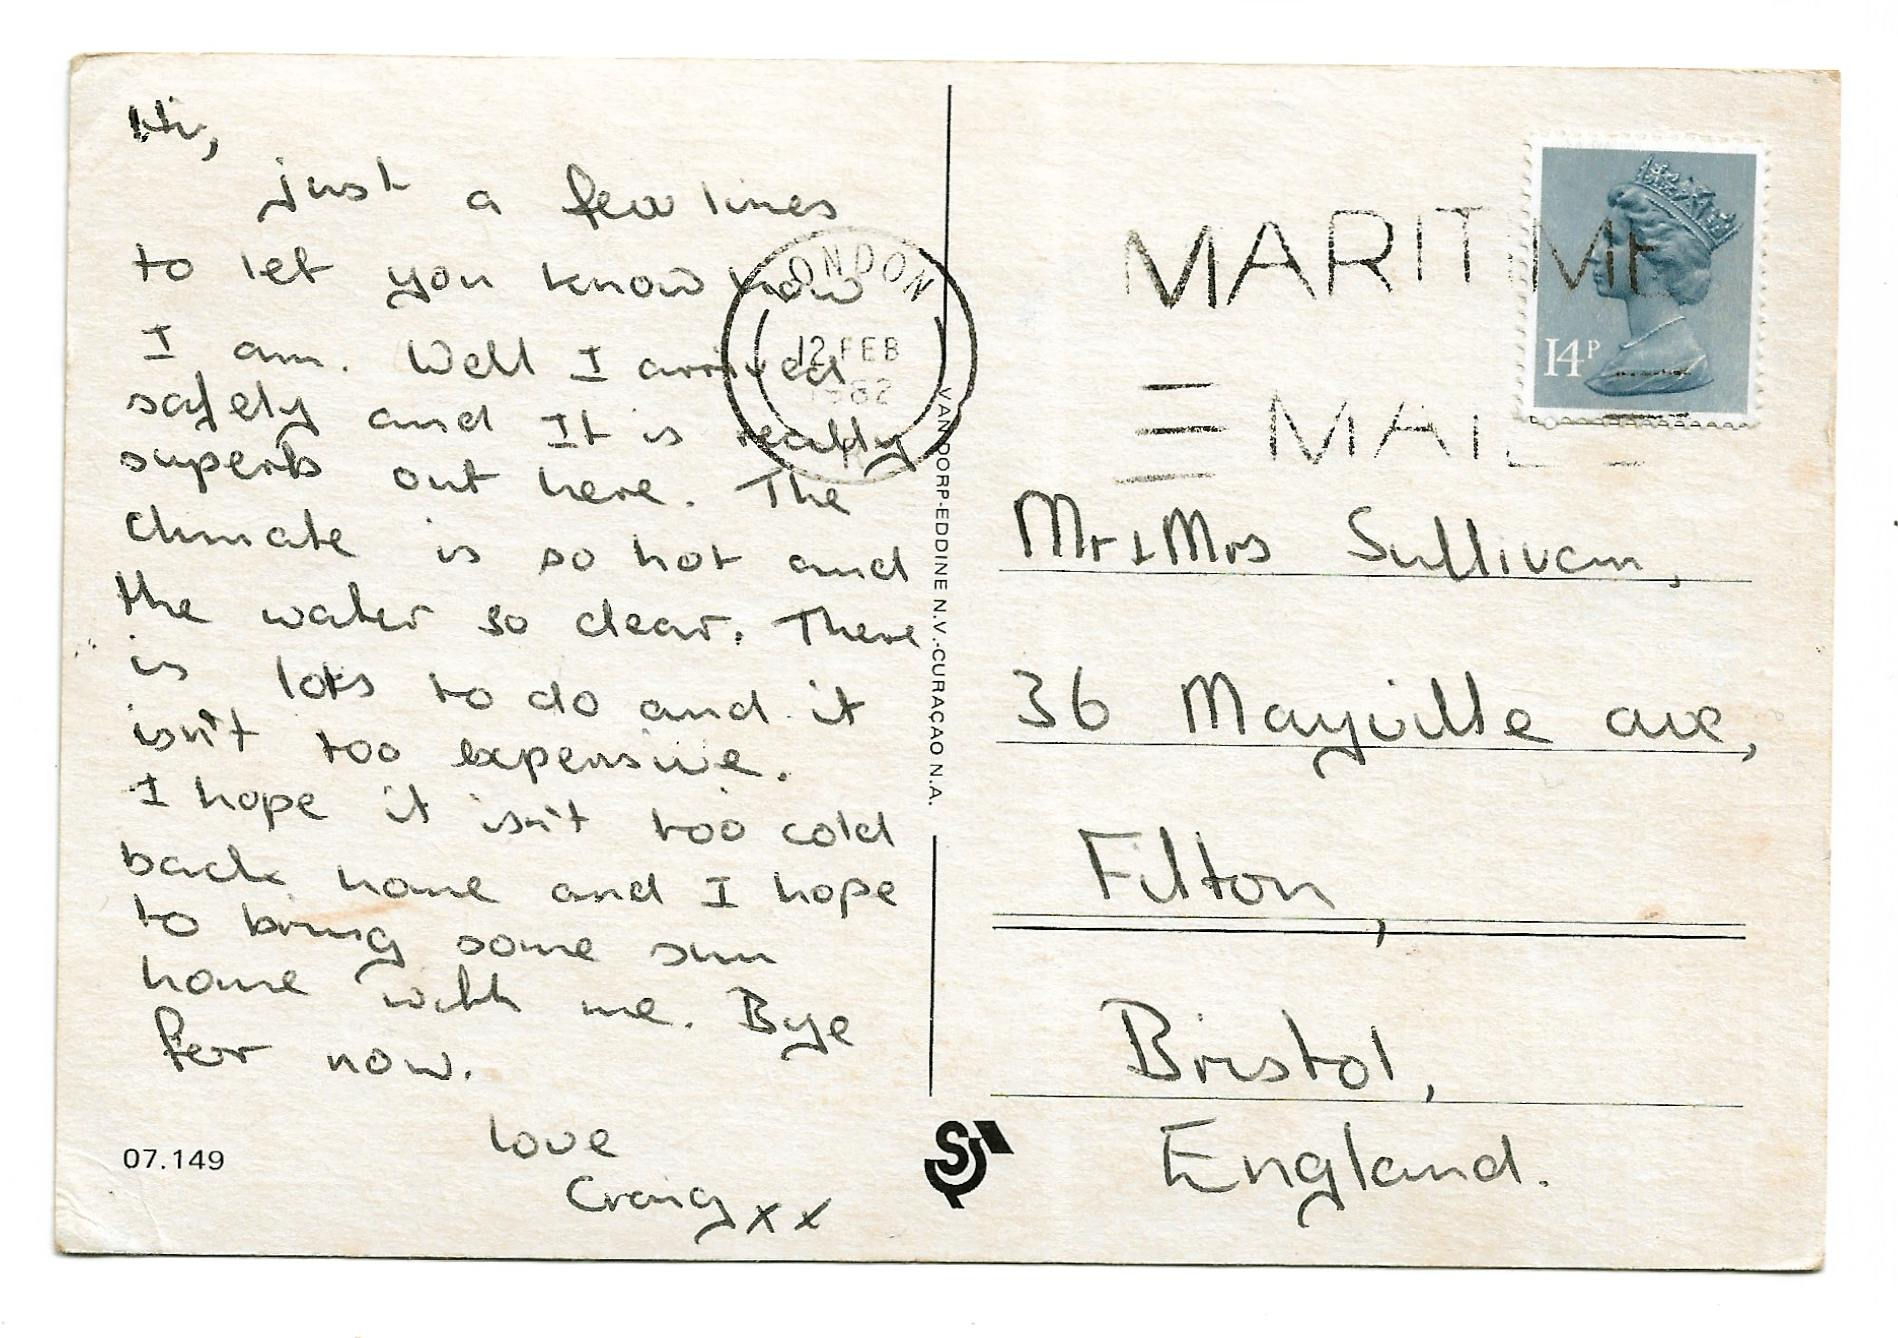 Hi,
just a few lines
to let you know how
I am. Well I arrived
safely and It is really
superb out here. The
climate is so hot and
the water so clear. There
is lots to do and it
isn't too expensive.
I hope it isn't too cold
back home and I hope
to bring some sun
home with me. Bye
for now.
love
Craig xx
07.149
LONDON
12 FEB
1982
VAN DORP-EDDINE N.V.-CURAÇAO N.A.
MARITIME
MAIL
14P
Mr & Mrs Sullivan,
36 Mayville ave,
Filton,
Bristol,
England.